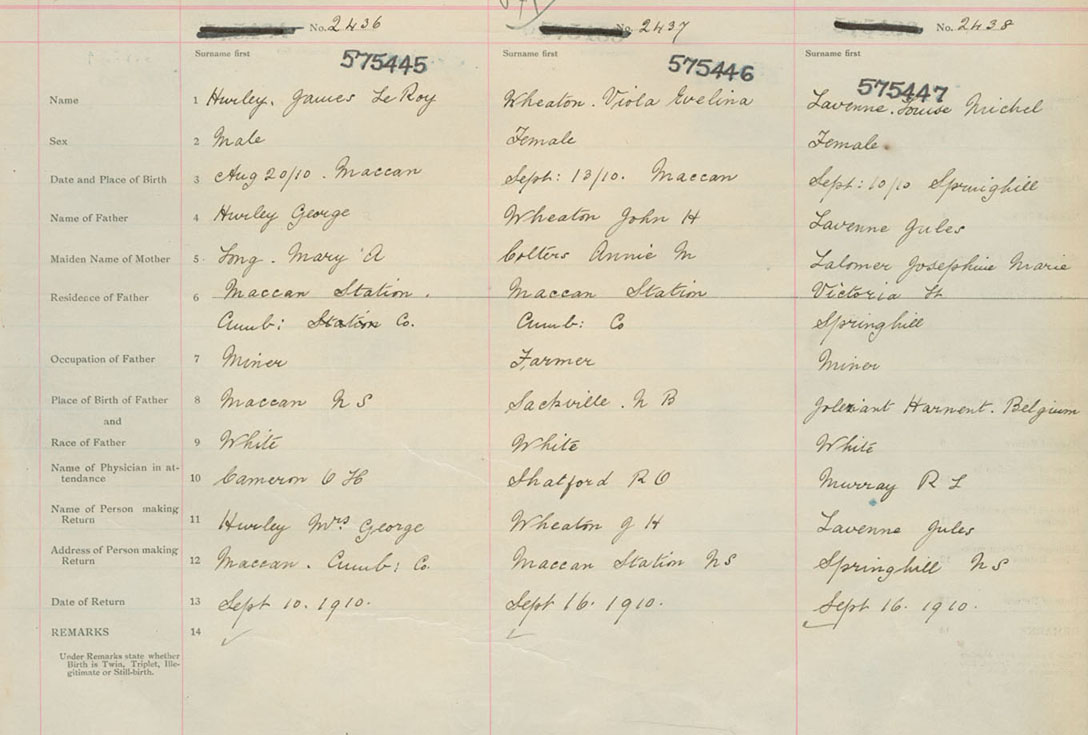 No. 2436
No. 2437
No. 2438
Surname first
Surname first
Surname first
575445
575446
575447
Name 1 Hurley. James LeRoy
Wheaton. Viola Evelina
Lavenne. Louise Michel
Sex 2 Male
Female
Female
Date and Place of Birth 3 Aug 20/10. Maccan
Sept: 13/10. Maccan
Sept: 10/10 Springhill
Name of Father 4 Hurley George
Wheaton John H
Lavenne Jules
Maiden Name of Mother 5 Long. Mary A
Colters Annie M
Lalomer Josephine Marie
Residence of Father 6 Maccan Station.
Maccan Station
Victoria St
Cumb: Station Co.
Cumb: Co
Springhill
Occupation of Father 7 Miner
Farmer
Miner
Place of Birth of Father 8 Maccan N S
Sackville. N B
Harnent. Belgium
and
Race of Father 9 White
White
White
Name of Physician in at-
tendance 10 Cameron O H
Shatford R O
Murray R L
Name of Person making
Return 11 Hurley Mrs George
Wheaton J H
Lavenne Jules
Address of Person making
Return 12 Maccan. Cumb: Co.
Maccan Station NS
Springhill NS
Date of Return 13 Sept 10. 1910.
Sept 16. 1910.
Sept 16. 1910.
REMARKS 14
Under Remarks state whether
Birth is Twin, Triplet, Ille-
gitimate or Still-birth.